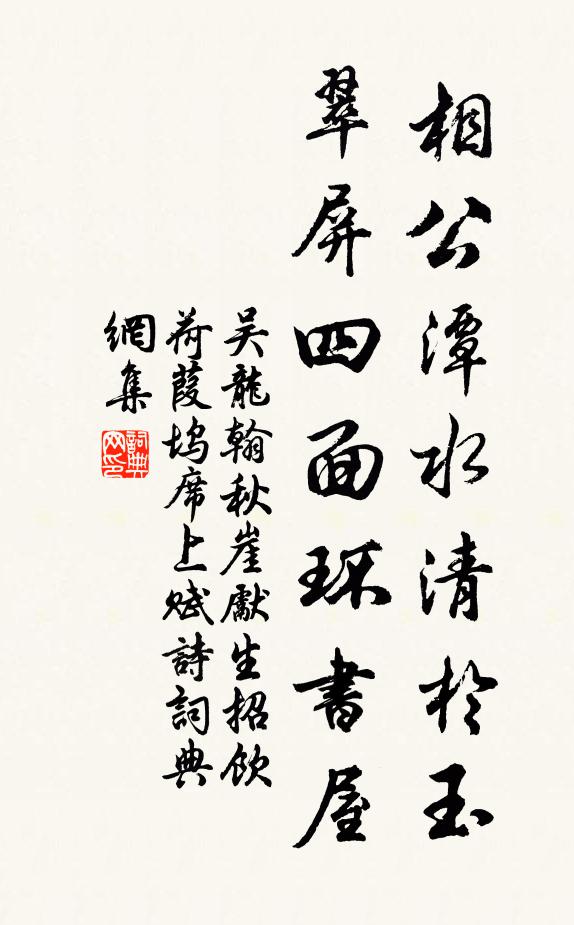 相公潭水清於玉
翠屏四面环書屋
吴龍翰秋崖獻生招飲
荷葭塢席上赋詩詞典
網集
詞典
网印